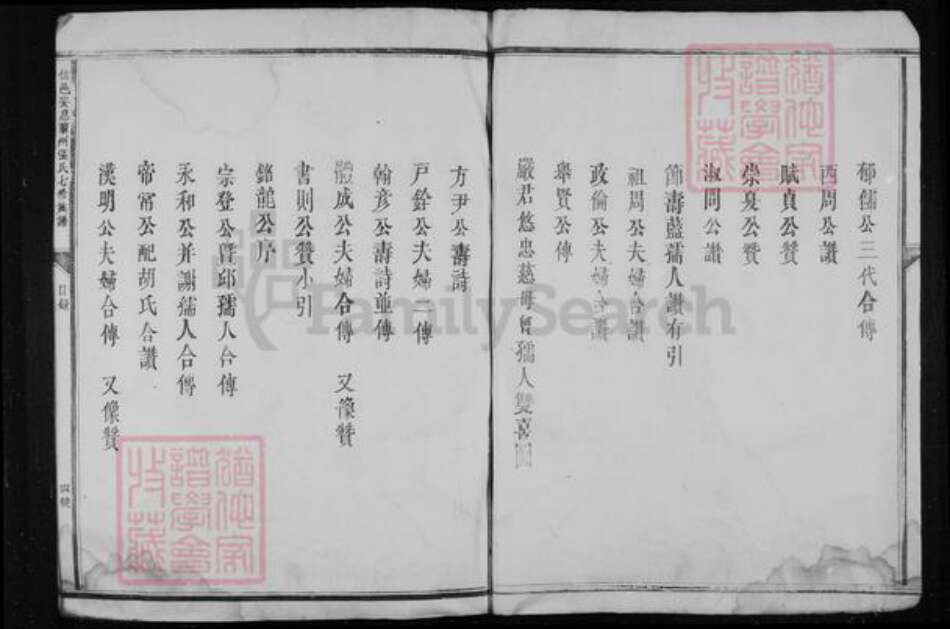 郁儒公三代合傳
西周公讚
賦貞公贊
崇夏公贊
淑問公讚
節壽藍孺人讚有引
祖周公夫婦合讚
政倫公夫婦合讚
舉賢公傳
嚴君悠忠慈母曾孺人雙喜圖
方尹公壽詩
戸銓公夫婦二傳
翰彦公壽詩並傳
體成公夫婦合傳 又像贊
書則公贊小引
銘龍公序
宗登公暨邱孺人合傳
永和公并謝孺人合傳
帝甯公配胡氏合讚
漢明公夫婦合傳 又像贊
信邑安息蘭州張氏七修族譜
目錄
FamilySearch
猶他家
譜學會
收藏
猶他家
譜學會
收藏